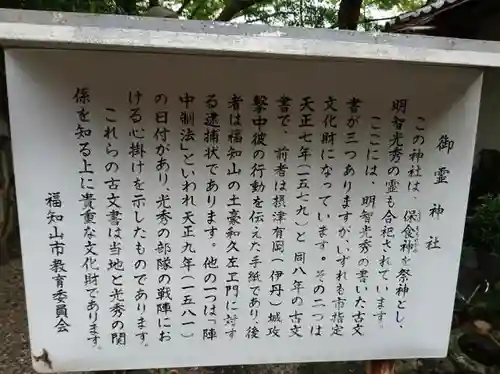 御霊神社
この神社は、保食神を祭神とし、
明智光秀の霊も合祀されています。
ここには、明智光秀の書いた古文
書が三つありますが、いずれも市指定
文化財になっています。その二つは
天正七年(一五七九)と同八年の古文
書で、前者は摂津有岡(伊丹)城攻
撃中彼の行動を伝えた手紙であり、後
者は福知山の土豪和久左ヱ門に対す
る逮捕状であります。他の一つは「陣
中制法」といわれ天正九年(一五八一)
の日付があり、光秀の部隊の戦陣にお
ける心掛けを示したものであります。
これらの古文書は当地と光秀の関
係を知る上に貴重な文化財であります。
福知山市教育委員会